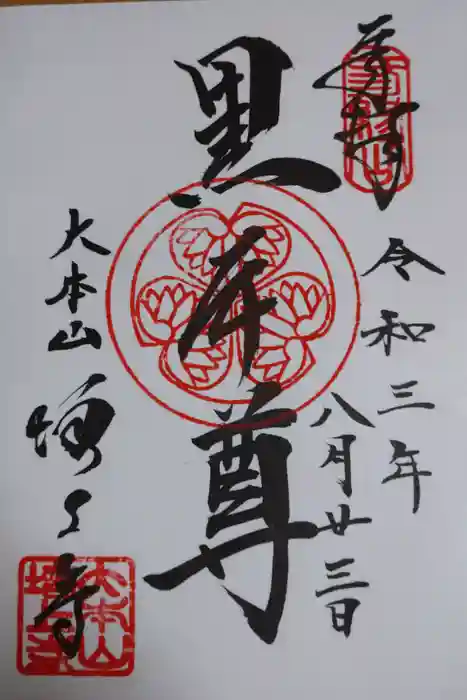 奉拝
令和三年
八月廿三日
黒本尊
大本山 増上寺
大本山
増上寺